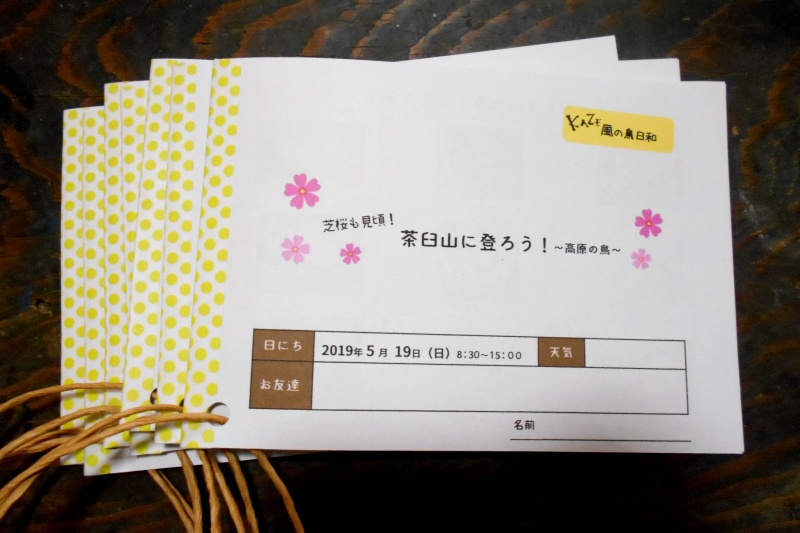 KAZE風の鳥日和
芝桜も見頃！
茶臼山に登ろう！～高原の鳥～
日にち 2019年5月19日（日）8:30～15:00 天気
お友達
名前